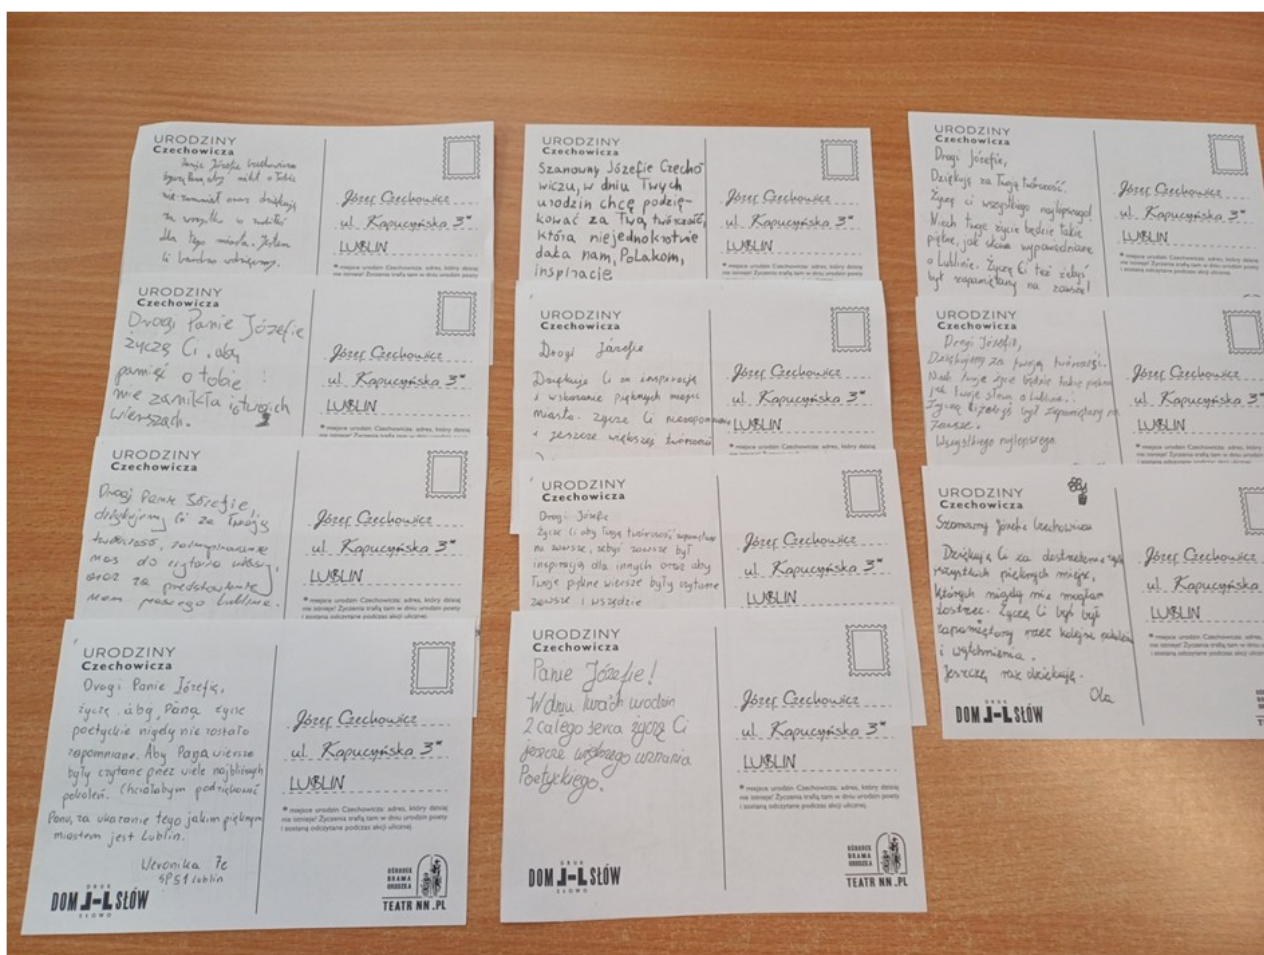 URODZINY
Czechowicza
Panie Józefie Czechowiczu
życzę Panu, aby nikt o Tobie
nie zapomniał oraz dziękuję
za wszystko co zrobiłeś
dla tego miasta. Jestem
Ci bardzo wdzięczny.
Józef Czechowicz
ul. Kapucyńska 3*
LUBLIN
* miejsce urodzin Czechowicza: adres, który dzisiaj
nie istnieje! Życzenia trafią tam w dniu urodzin poety
URODZINY
Czechowicza
Drogi Panie Józefie
życzę Ci, aby
pamięć o tobie
nie zanikła i o twoich
wierszach.
Józef Czechowicz
ul. Kapucyńska 3*
LUBLIN
* miejsce urodzin Czechowicza: adres, który dzisiaj
URODZINY
Czechowicza
Drogi Panie Józefie,
dziękujemy Ci za Twoją
twórczość, zainspirowanie
nas do czytania
oraz za predstawienie
nam naszego Lublina.
Józef Czechowicz
ul. Kapucyńska 3*
LUBLIN
* miejsce urodzin Czechowicza: adres, który dzisiaj
nie istnieje! Życzenia trafią tam w dniu urodzin poety
i zostaną odczytane podczas akcji ulicznej.
URODZINY
Czechowicza
Drogi Panie Józefie,
życzę aby Pana życie
poetyckie nigdy nie zostało
zapomniane. Aby Pana wiersze
były czytane przez wiele najbliższych
pokoleń. Chciałabym podziękować
Panu, za ukazanie tego jakim pięknym
miastem jest Lublin.
Weronika 7c
SP51 Lublin
Józef Czechowicz
ul. Kapucyńska 3*
LUBLIN
* miejsce urodzin Czechowicza: adres, który dzisiaj
nie istnieje! Życzenia trafią tam w dniu urodzin poety
i zostaną odczytane podczas akcji ulicznej.
DRUK
DOM SŁÓW
SŁOWO
OŚRODEK
BRAMA
GRODZKA
TEATR NN.PL
URODZINY
Czechowicza
Szanowny Józefie Czecho
wiczu, w dniu Twych
urodzin chcę podzię-
kować za Twą twórczość,
która niejednokrotnie
dała nam, Polakom,
inspirację
Józef Czechowicz
ul. Kapucyńska 3*
LUBLIN
* miejsce urodzin Czechowicza: adres, który dzisiaj
nie istnieje! Życzenia trafią tam w dniu urodzin poety
URODZINY
Czechowicza
Drogi Józefie
Dziękuje Ci za inspirację
i wskazanie pięknych miejsc
miasta. Życze Ci
i jeszcze większej twórczości
Józef Czechowicz
ul. Kapucyńska 3*
LUBLIN
* miejsce urodzin Czechowicza: adres, który dzisiaj
URODZINY
Czechowicza
Drogi Józefie
Życze Ci aby Twoją twórczość zapamiętano
na zawsze, żebyś zawsze był
inspiracją dla innych oraz aby
Twoje piękne wiersze były czytane
zawsze i wszędzie
Józef Czechowicz
ul. Kapucyńska 3*
LUBLIN
URODZINY
Czechowicza
Panie Józefie!
W dniu twoich urodzin
z całego serca życzę Ci
jeszcze większego uznania
Poetyckiego.
Józef Czechowicz
ul. Kapucyńska 3*
LUBLIN
* miejsce urodzin Czechowicza: adres, który dzisiaj
nie istnieje! Życzenia trafią tam w dniu urodzin poety
i zostaną odczytane podczas akcji ulicznej.
DRUK
DOM SŁÓW
SŁOWO
OŚRODEK
BRAMA
GRODZKA
TEATR NN.PL
URODZINY
Czechowicza
Drogi Józefie,
Dziękuję za Twoją twórczość.
Życzę ci wszystkiego najlepszego!
Niech twoje życie będzie takie
piękne, jak słowa wypowiedziane
o Lublinie. Życzę Ci też żebyś
był zapamiętany na zawsze!
Józef Czechowicz
ul. Kapucyńska 3*
LUBLIN
* miejsce urodzin Czechowicza: adres, który dzisiaj
nie istnieje! Życzenia trafią tam w dniu urodzin poety
i zostaną odczytane podczas akcji ulicznej.
URODZINY
Czechowicza
Drogi Józefie,
Dziękujemy za twoją twórczość.
Niech twoje życie będzie takie piękne
jak twoje słowa o Lublinie.
Życzę Ci żebyś był zapamiętany na
zawsze.
Wszystkiego najlepszego
Józef Czechowicz
ul. Kapucyńska 3*
LUBLIN
URODZINY
Czechowicza
Szanowny Józefie Czechowiczu
Dziękuję Ci za
wszystkich pięknych miejsc,
których nigdy nie mogłam
dostrzec. Życzę Ci byś był
zapamiętany przez kolejne pokolenia
i
Jeszcze raz dziękuję.
Ola
Józef Czechowicz
ul. Kapucyńska 3
LUBLIN
DOM SŁÓW